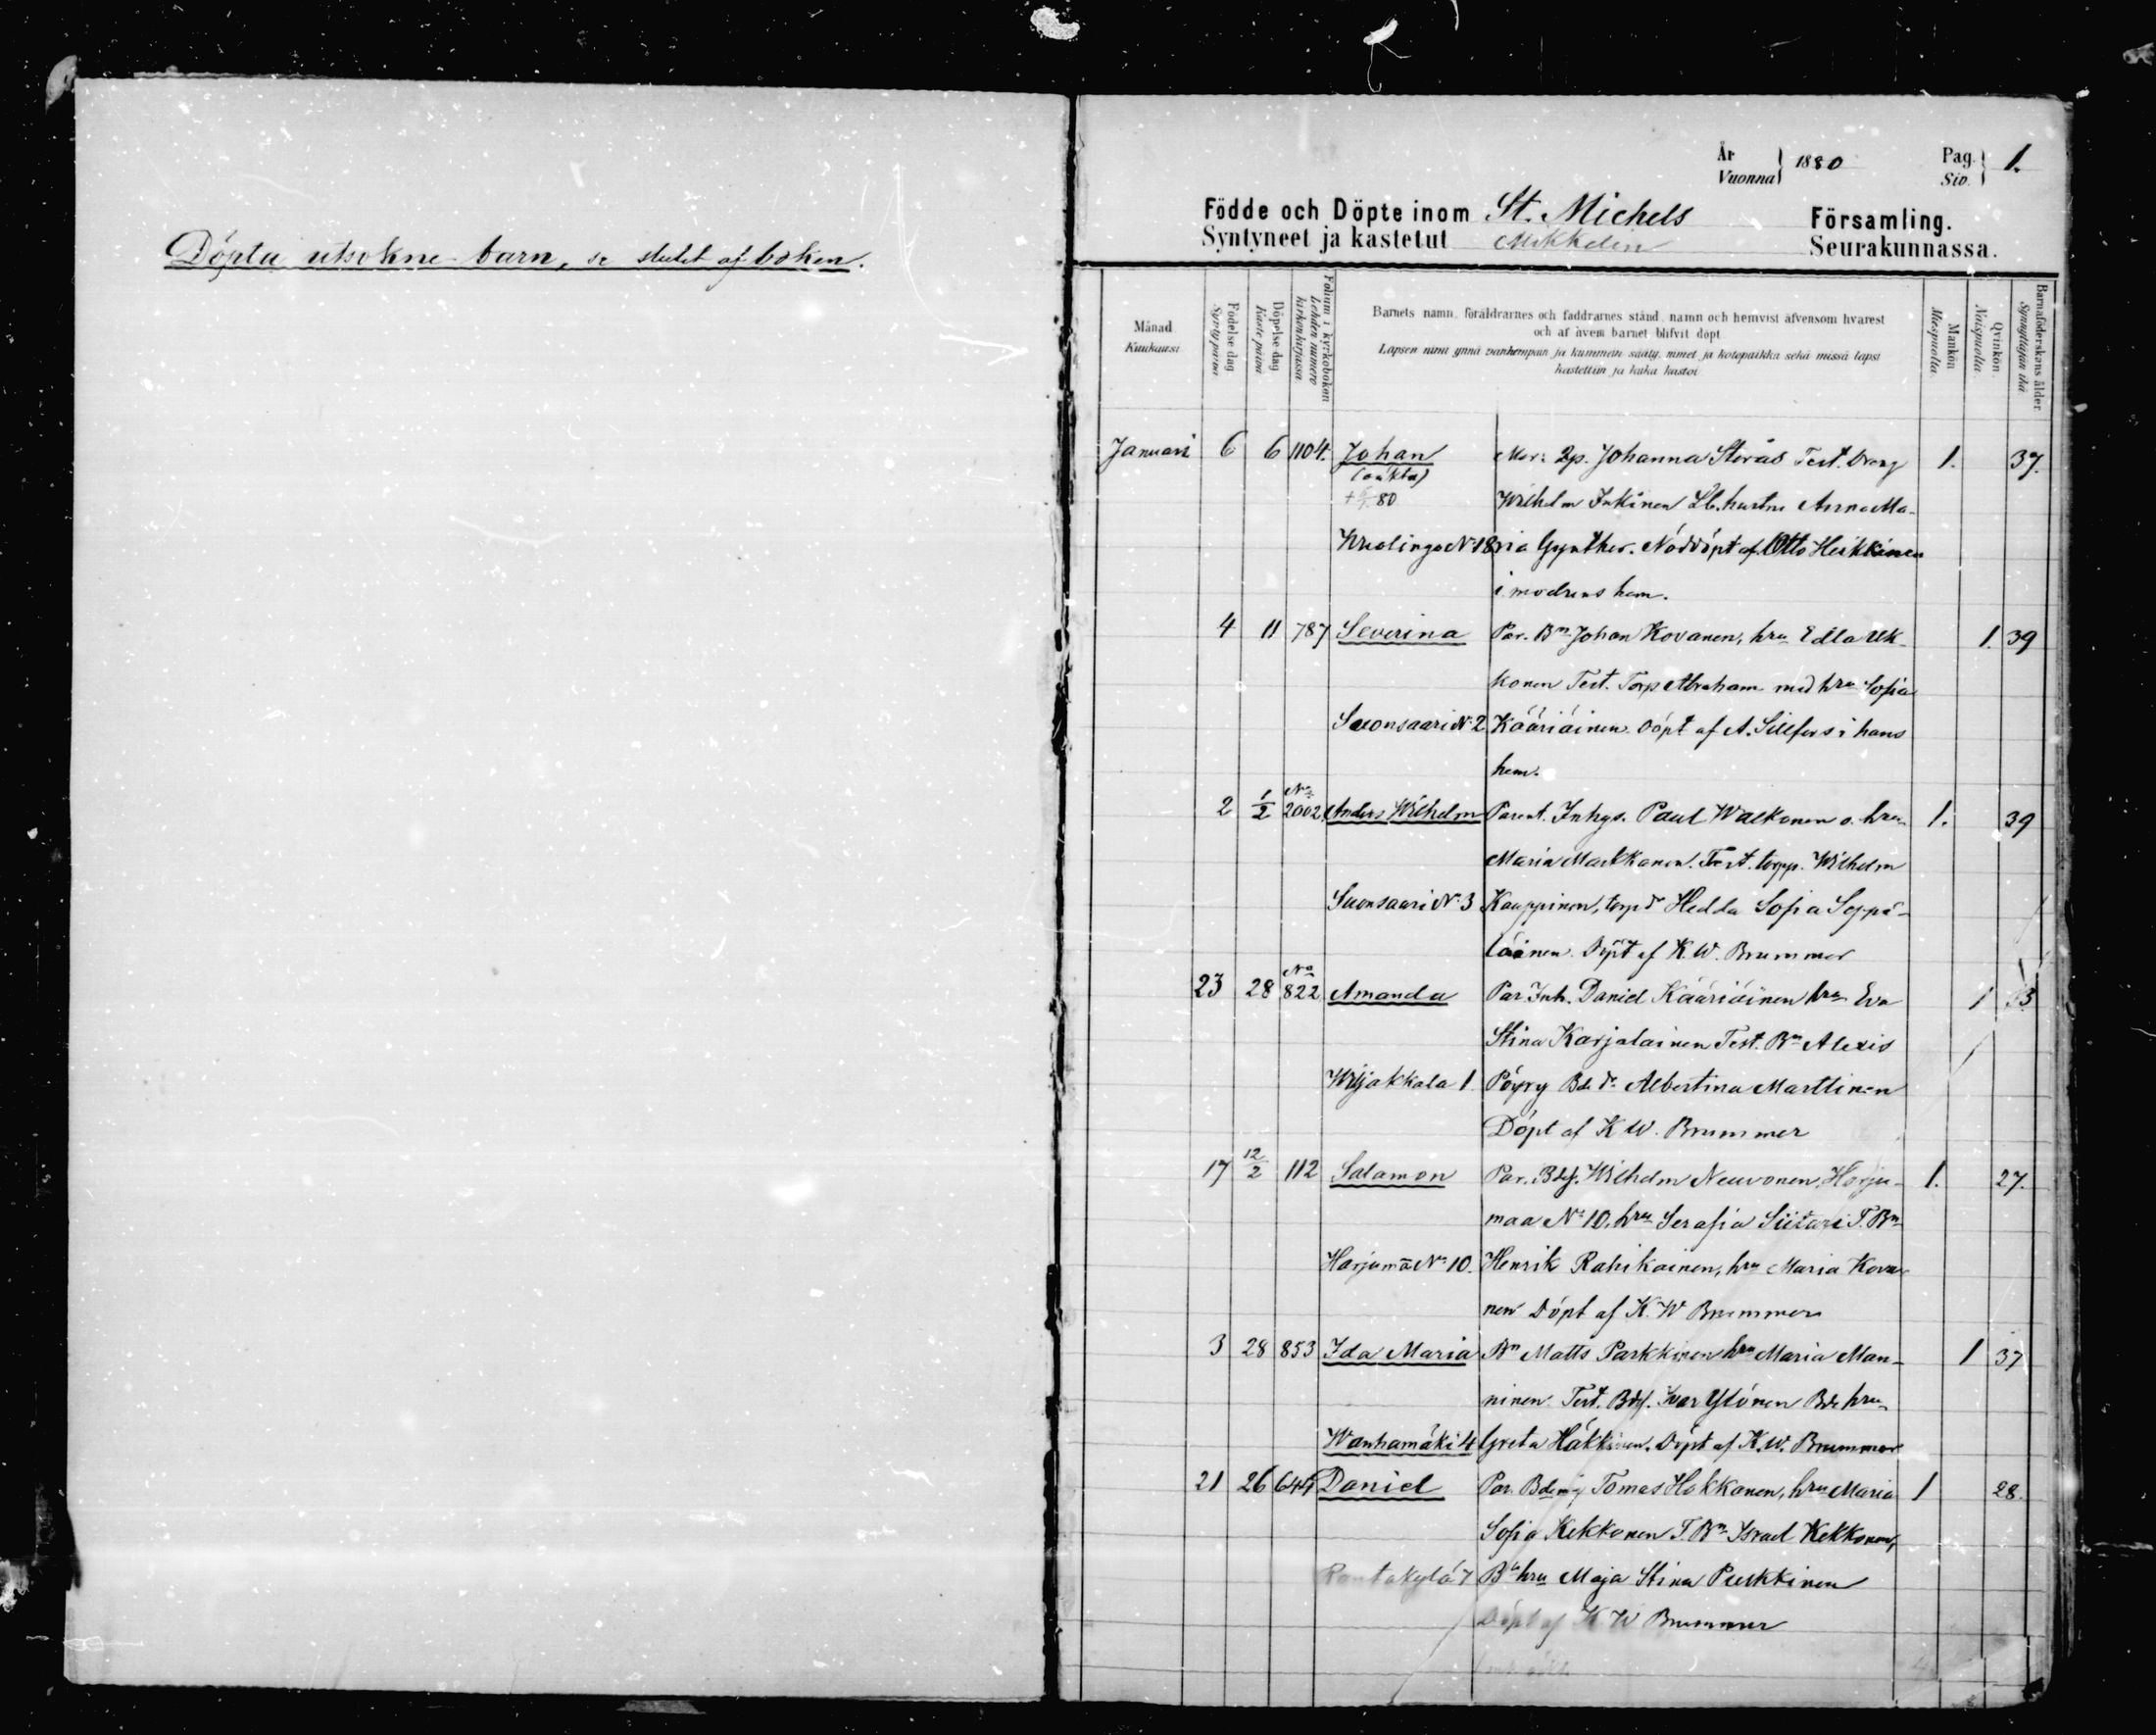 Döpta utsokne barn, se slutet af boken.
År
Vuonna 1880 Pag. Siv. 1.
Födde och Döpte inom St. Michels Församling.
Syntyneet ja kastetut Mikkelin Seurakunnassa.
Månad
Kuukausi
Födelse dag
Syntypäivä
Döpelse dag
Kaste päivä
Folium i kyrkoboken
Lehden numero kirkonkirjassa
Barnets namn, föräldrarnes och faddrarnes stånd, namn och hemvist äfvensom hvarest
och af hvem barnet blifvit döpt
Lapsen nimi ynnä vanhempain ja kummein sääty, nimet ja kotopaikka sekä missä lapsi
kastettiin ja kuka kastoi
Mankön
Miespuolia.
Qvinkön
Naispuolia.
Barnaföderskans ålder.
Synnyttäjän ikä
Januari 6 6 1104. Johan Mor: Johanna Sterås Test. Dreng 1. 37.
(oäkta)
80 Wilhelm Inkinen Lb. hustru Anna Ma-
No 18 ria Gynther. Nöddöpt af Otto Heikkinen
i modrens hem.
4 11 787 Severina Par. Bn Johan Kovanen, hru Edla Uk- 1. 39
konen Test. Torp Abraham med hru Sofia
Suonsaari No 2 Kääriäinen Döpt af A. Sillfors i hans
hem.
2 1/2 No 2002 Anders Wilhelm Parent. Inhys. Paul Walkonen o. hru 1. 39
Maria Markkanen. Test. torpp. Wilhelm
Suonsaari No 3 Kauppinen, torp dr Hedda Sofia Seppä-
läinen Döpt af K. W. Brummer
23 28 No 822 Amanda Par Inh. Daniel Kääriäinen hru Eva 1
Stina Karjalainen Test. Bn Alexis
Wiljakkala 1 Pöyry Bde dr Albertina Marttinen
Döpt af K W. Brummer
17 12/2 112 Salamon Par. Bdef. Wilhelm Neuvonen, Harju- 1. 27.
maa No 10, hru Serafia Siitari T. Bn
Harjumā No 10. Henrik Rahikainen, hru Maria Kova-
nen Döpt af K. W Brummer
3 28 853 Ida Maria Bn Matts Parkkinen hru Maria Man- 1 37
ninen. Test. Bdef. Ivar Ylönen Bde hru
Wanhamäki 4 Greta Häkkinen. Döpt af K. W. Brummer
21 26 644 Daniel Par. Tomas Hokkanen, hru Maria 1 28.
Sofia Kekkonen T. Bn Israel Kekkonen,
Rantakylä 7 Bn hru Maja Stina Pulkkinen
Döpt af K W Brummer